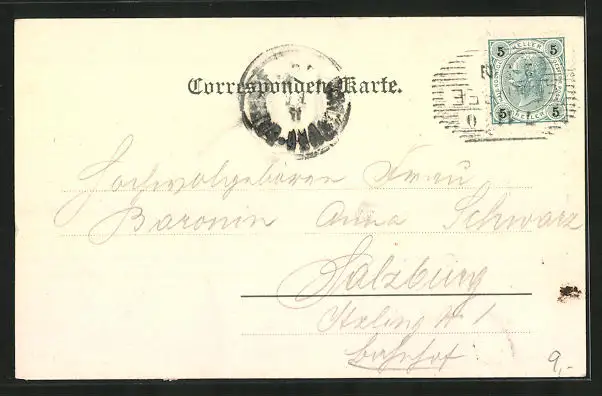 Correspondenz-Karte.
5 HELLER 5
5 HELLER 5
Hochwolgeboren Frau
Baronin Anna Schwarz
Salzburg
No 1
bahnhof:
9,-